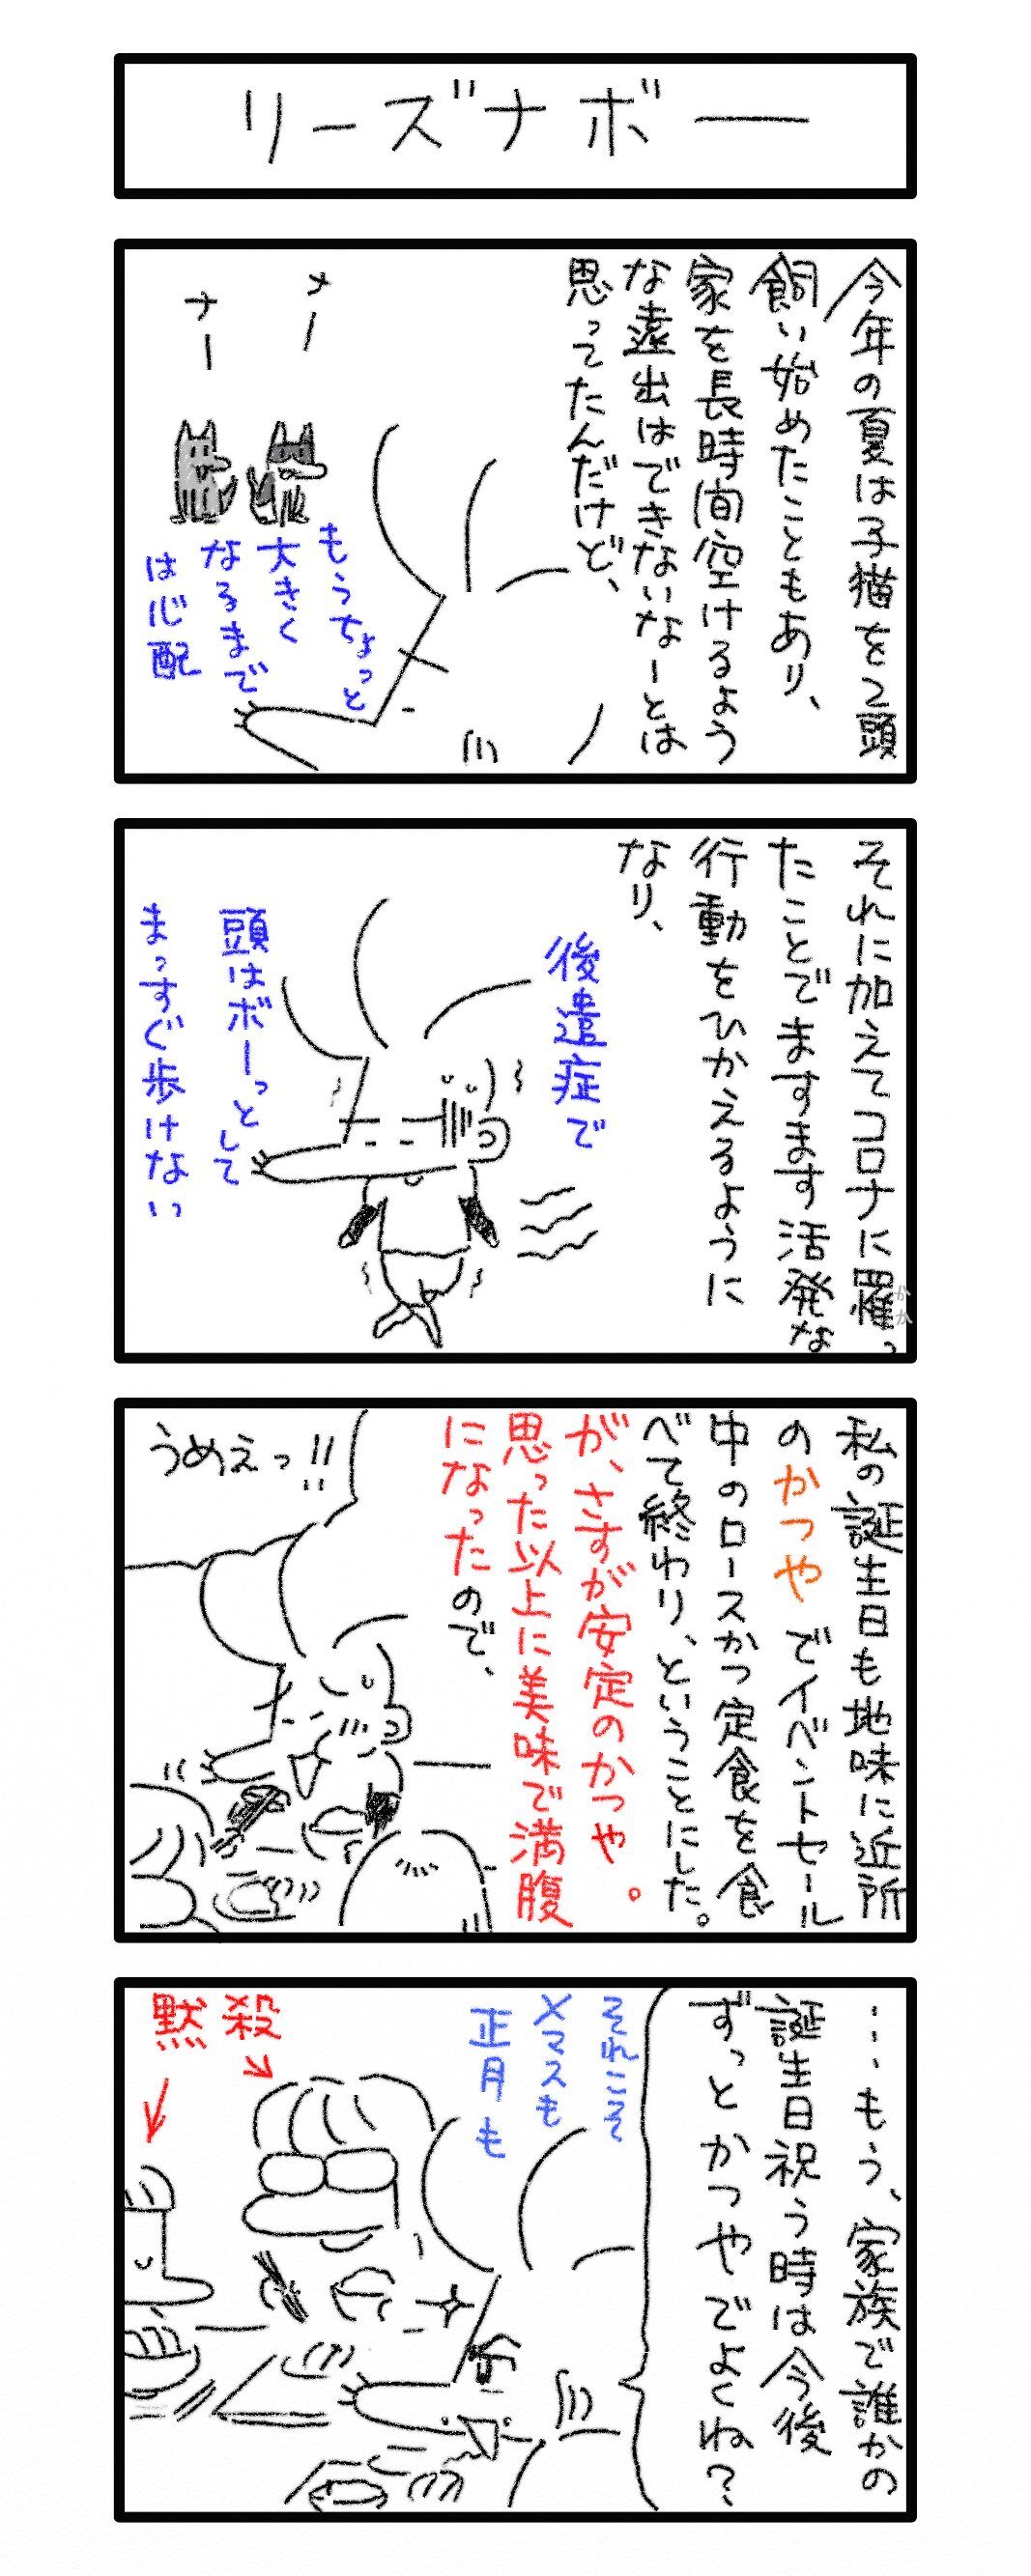 リーズナボー
今年の夏は子猫を2頭
飼い始めたこともあり、
家を長時間空けるよう
な遠出はできないなーとは
思ってたんだけど、
ナー
ナー
もうちょっと
大きく
なるまで
は心配
それに加えてコロナに罹っ
かか
たことでますます活発な
行動をひかえるように
なり、
後遺症で
頭はボーっとして
まっすぐ歩けない
私の誕生日も地味に近所
のかつやでイベントセール
中のロースかつ定食を食
べて終わり、ということにした。
が、さすが安定のかつや。
思った以上に美味で満腹
になったので、
うめえっ!!
…もう、家族で誰かの
誕生日祝う時は今後
ずっとかつやでよくね?
それこそ
Xマスも
正月も
殺
黙